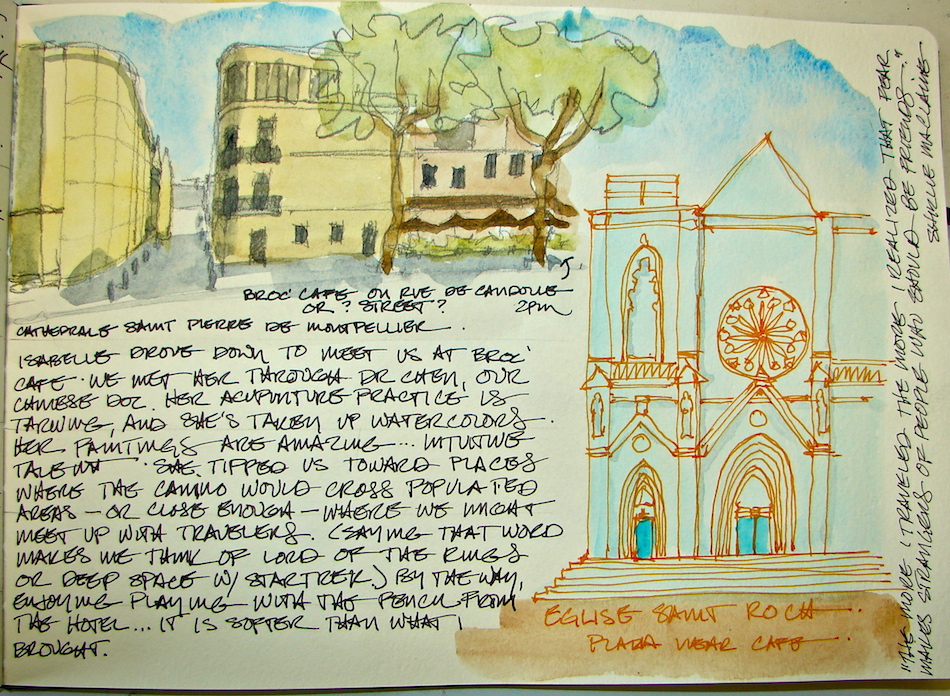 BROC' CAFE ON RUE DE CANDOLLE
OR ? STREET? 2PM
CATHEDRALE SAINT PIERRE DE MONTPELLIER.
ISABELLE DROVE DOWN TO MEET US AT BROC'
CAFE. WE MET HER THROUGH DR CHEN, OUR
CHINESE DOC. HER ACUPUNTURE PRACTICE IS
AND SHE'S TAKEN UP WATERCOLORS.
HER PAINTINGS ARE AMAZING... INTUITIVE
TALENT. SHE TIPPED US TOWARD PLACES
WHERE THE CAMINO WOULD CROSS POPULATED
AREAS – OR CLOSE ENOUGH – WHERE WE MIGHT
MEET UP WITH TRAVELERS. (SAYING THAT WORD
MAKES ME THINK OF LORD OF THE RINGS
OR DEEP SPACE W/ STARTREK.) BY THE WAY,
ENJOYING PLAYING WITH THE PENCIL FROM
THE HOTEL... IT IS SOFTER THAN WHAT I
BROUGHT.
EGLISE SAINT ROCH..
PLAZA NEAR CAFE..
"THE MORE I TRAVELED THE MORE I REALIZED THAT FEAR
MAKES STRANGERS OF PEOPLE WHO SHOULD BE FRIENDS."
SHIRLLE MACLAINE